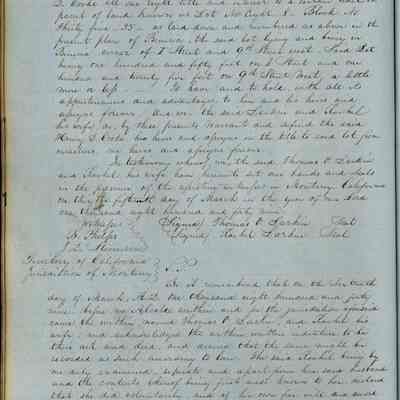 S. Cooke all our right title and interest to a certain piece or
parcel of land known as Lot No Eight 8. Block No
Thirty five 35 as laid down and numbered as above in the
present plan of Benicia the said lot lying and being in
Benicia corner of I Street and 9th Street west. Said Lot
being one hundred and fifty feet on I Street and one
hundred and twenty five feet on 9th Street West, a little
more or less. To have and to hold, with all its
appurtenances and advantages to him and his heirs and
assigns forever. And we the said Larkin and Rachel
his wife do, by these presents warrant and defend the said
S. Cooke his heirs and assigns in the title to said lot from
ourselves, our heirs and assigns forever.
In testimony whereof, we the said Thomas O. Larkin
and Rachel his wife have hereunto set our hands and seals
in the presence of the in Monterey California
on this the fifteenth day of March in the year of our Lord
one thousand eight hundred and forty nine.
Witness Signed Thomas O. Larkin Seal
Signed Rachel Larkin Seal
J. L.
Territory of California
Jurisdiction of Monterey
Be it remembered that on the
day of March, A.D. one thousand eight hundred and forty
nine before me Alcalde within and for the jurisdiction aforesaid
came the within named Thomas O. Larkin, and Rachel his
wife, and acknowledged the within written indenture to be
their act and deed, and desired that the same might be
recorded as such according to law. The said Rachel being by
me duly examined, separate and apart from her said husband
and the contents thereof being first made known to her, declared
that she did voluntarily and of her own free will and accord